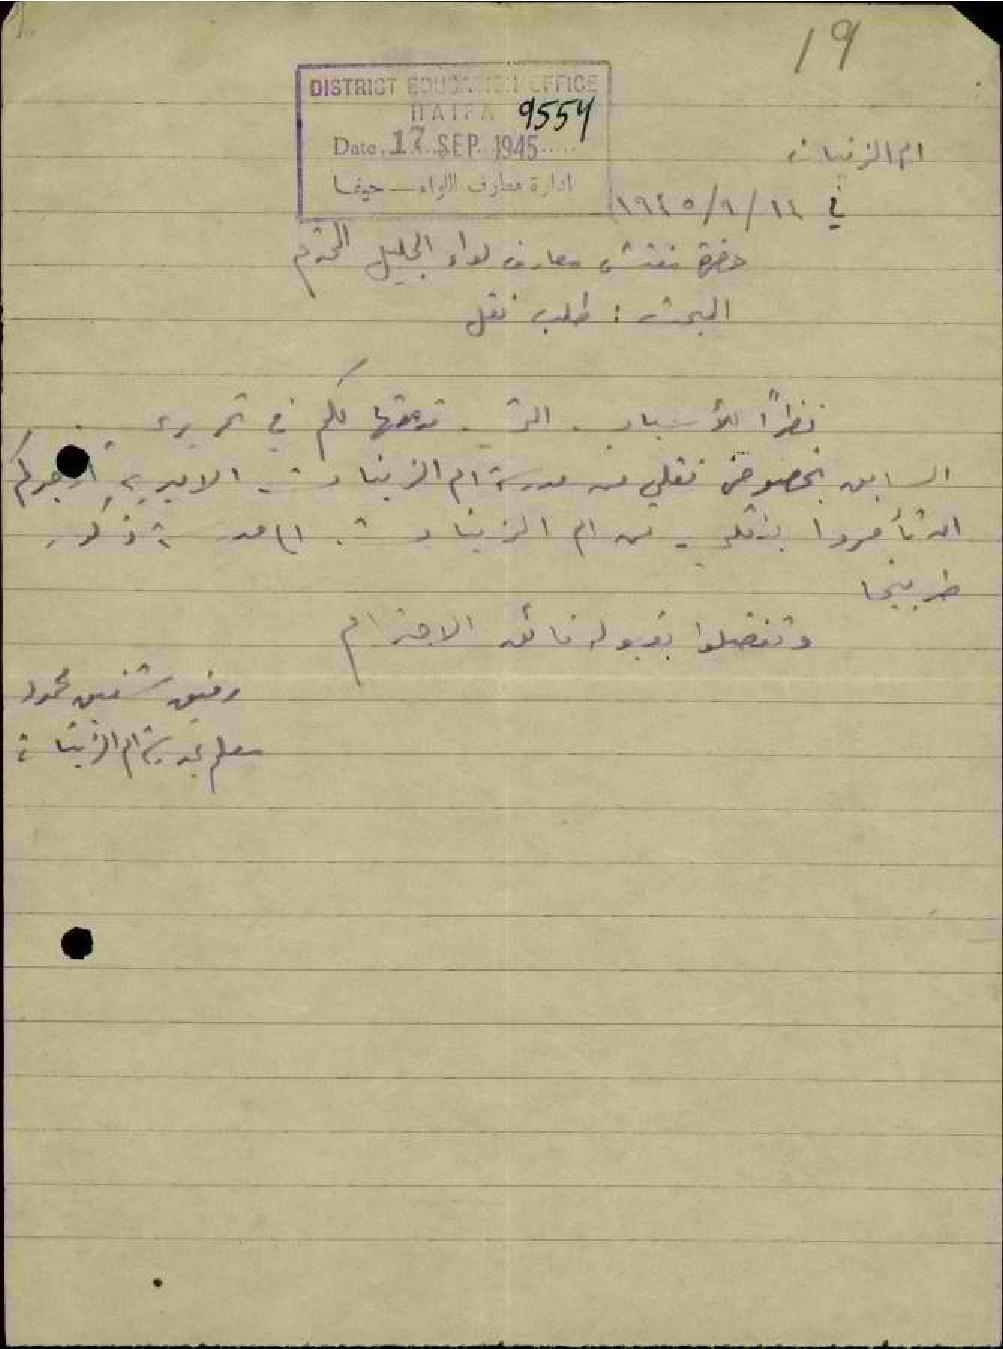 19
DISTRICT EDUCATION OFFICE
HAIFA 9554
Date 17 SEP 1945
ادارة معارف اللواء - حيفا
ام الزينات
في ١٤/٩/١٩٤٥
حضرة مفتش معارف لواء الجليل المحترم
البحث : طلب نقل
نظراً للأسباب التي قدمتها لكم في تحريري
السابق بخصوص نقلي من مدرسة ام الزينات الاميرية ارجوكم
ان تأمروا بنقلي من ام الزينات الى مدرسة ذكور
طربيخا
وتفضلوا بقبول فائق الاحترام
رفيق شفيق محمود
معلم بمدرسة ام الزينات